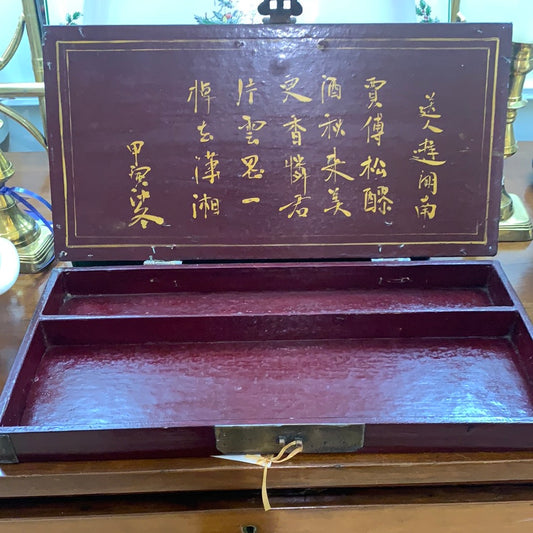 送人遊湖南
賈傅松醪
酒秋来美
更香憐君
片雲思一
棹去瀟湘
甲寅冬